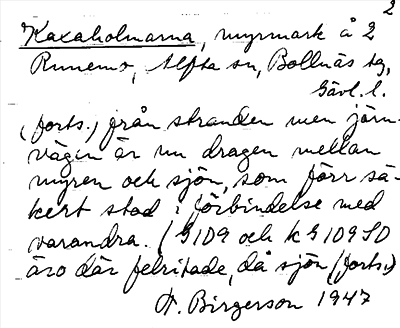 2
Kaxaholmarna, myrmark å 2
Runemo, Alfta sn, Bollnäs tg,
Gävl. l.
(forts.) från stranden men järn-
vägen är nu dragen mellan
myren och sjön, som förr sä-
kert stod i förbindelse med
varandra. (G109 och kG109SO
äro där felritade, då sjön (forts.)
H. Birgerson 1947